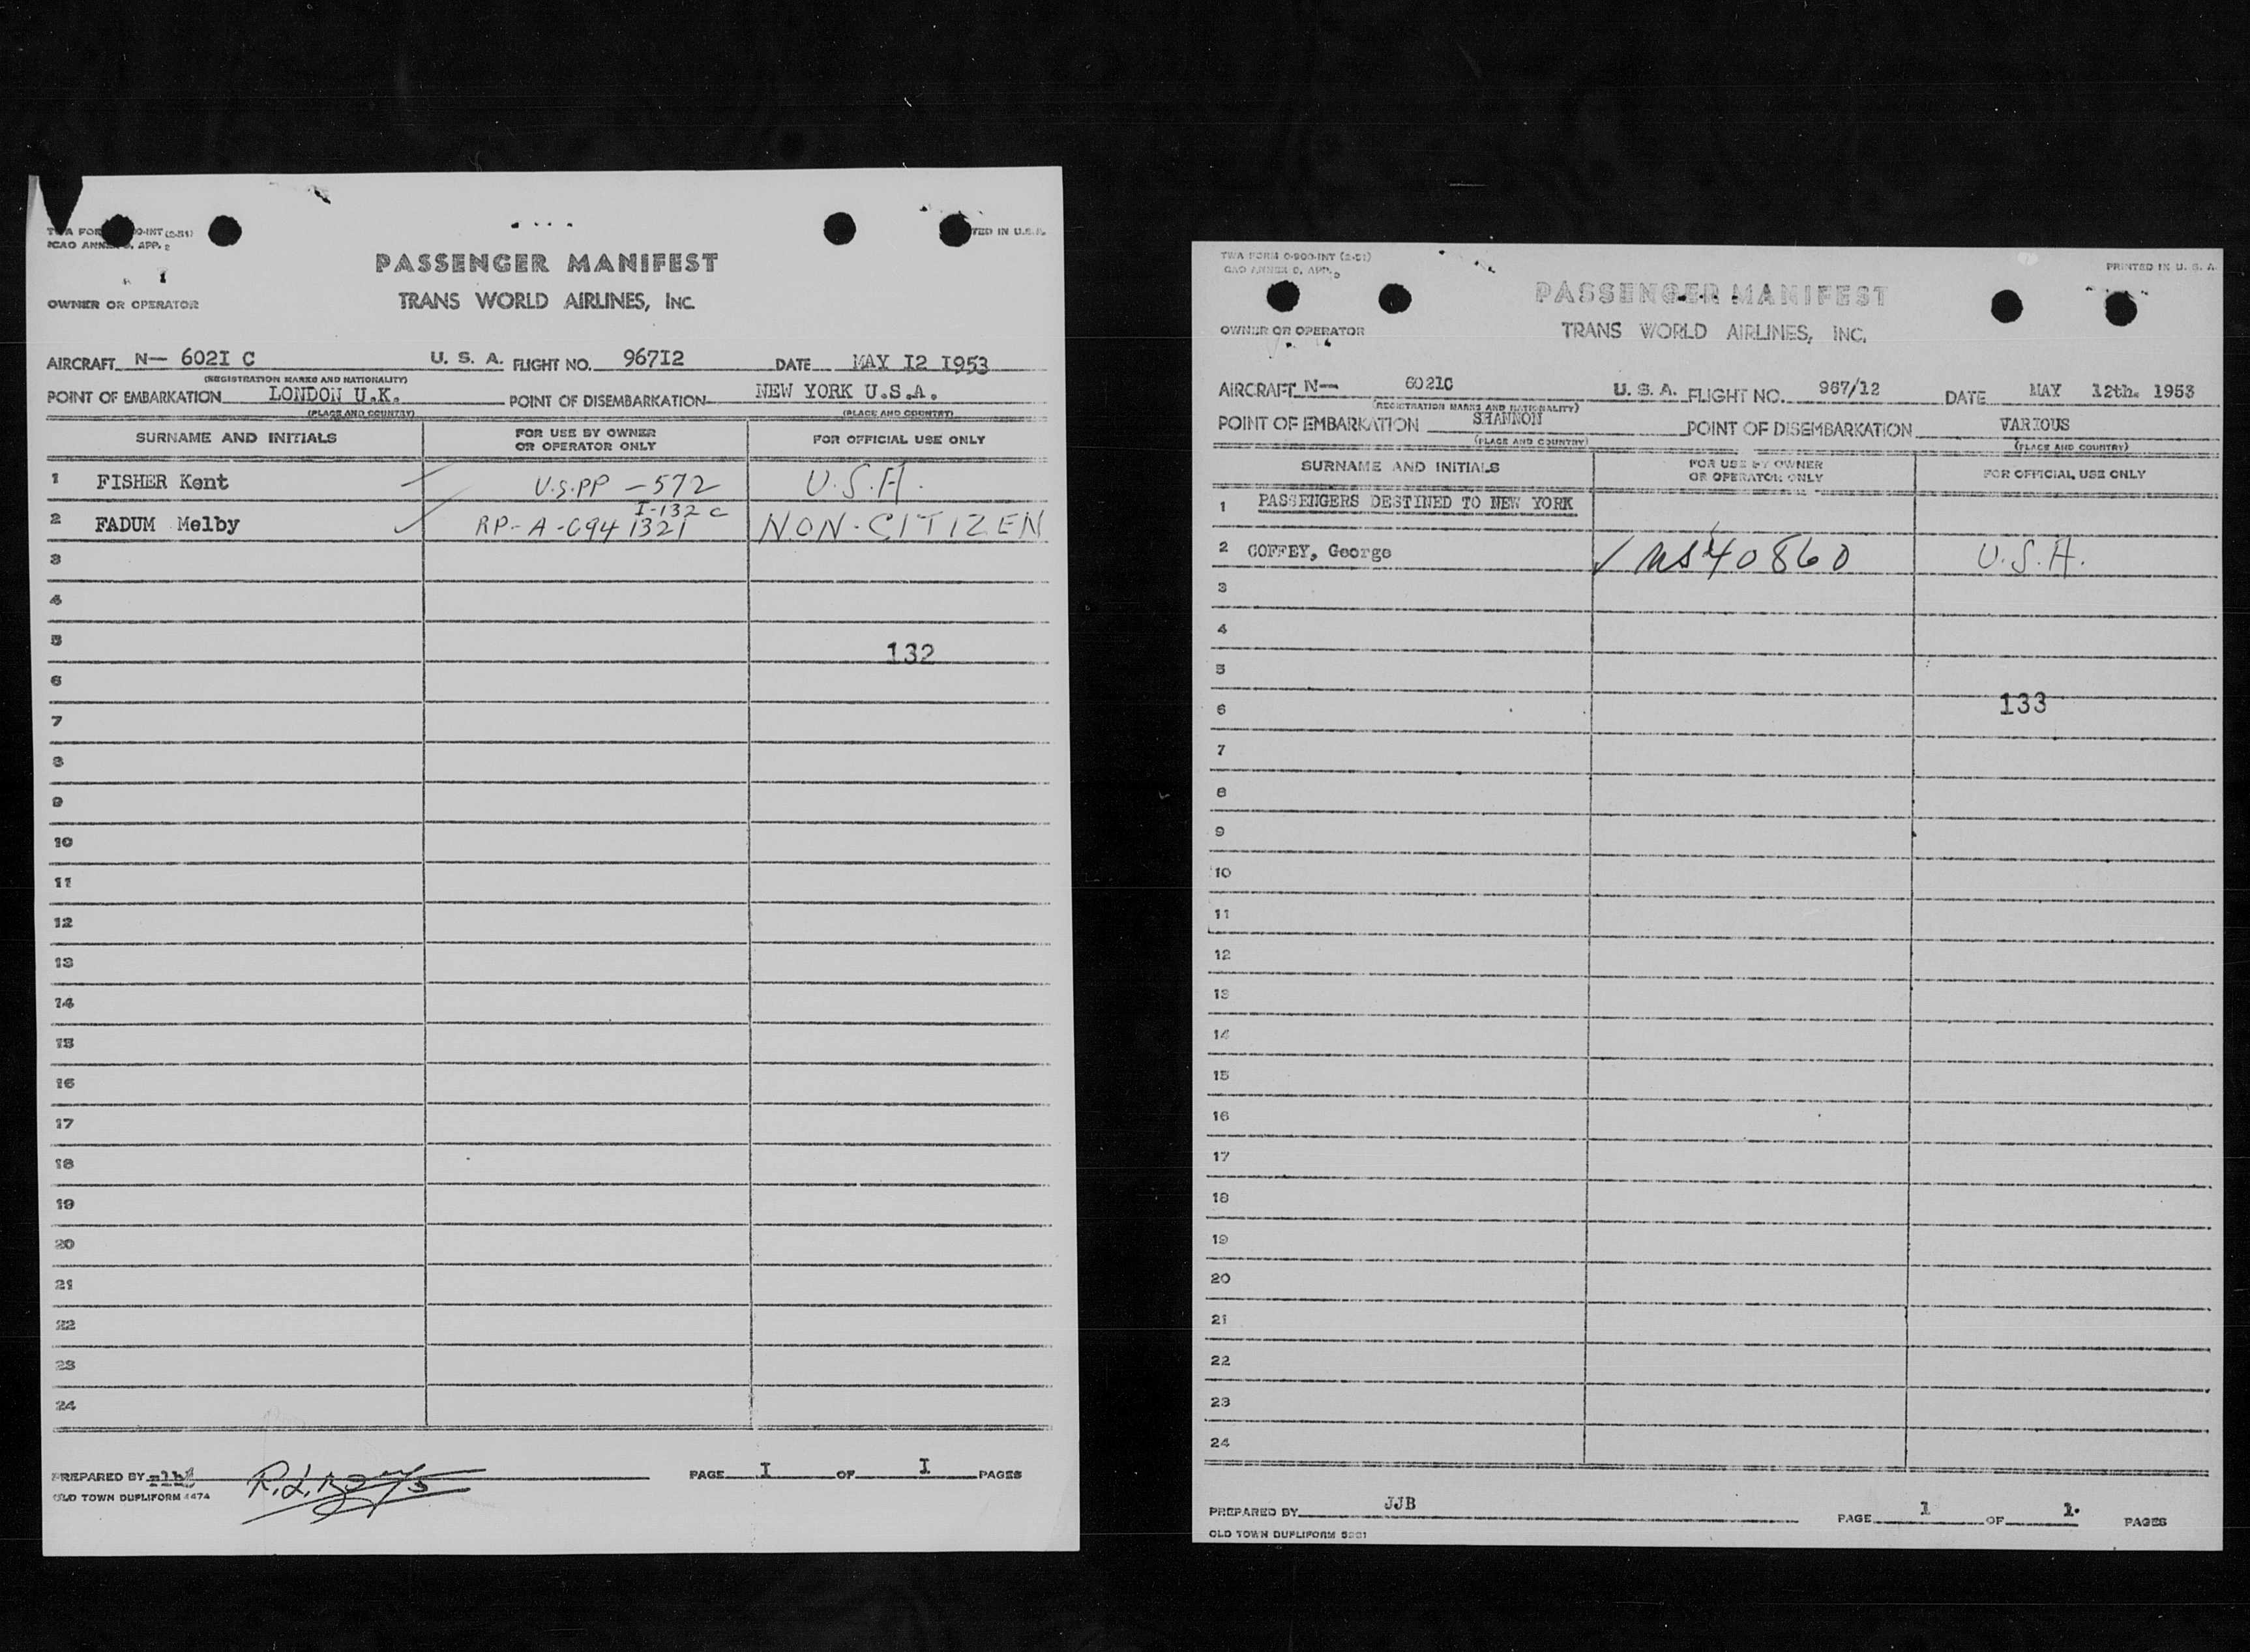 PRINTED IN U.S.A.
PASSENGER MANIFEST
TRANS WORLD AIRLINES, INC.
OWNER OR OPERATOR
AIRCRAFT N— 602I C U. S. A. FLIGHT NO. 967I2 DATE MAY I2 I953
(REGISTRATION MARKS AND NATIONALITY)
POINT OF EMBARKATION LONDON U.K. POINT OF DISEMBARKATION NEW YORK U.S.A.
(PLACE AND COUNTRY) (PLACE AND COUNTRY)
SURNAME AND INITIALS FOR USE BY OWNER OR OPERATOR ONLY FOR OFFICIAL USE ONLY
1 FISHER Kent U.S.PP - 572 U.S.A.
I-132 C
2 FADUM Melby RP-A-C94 1321 NON-CITIZEN
3
4
5 132
6
7
8
9
10
11
12
13
14
15
16
17
18
19
20
21
22
23
24
PREPARED BY PAGE I OF I PAGES
OLD TOWN DUPLIFORM 4474
TWA FORM O-900-INT (2-51)
ICAO ANNEX 9, APP. PRINTED IN U. S. A.
PASSENGER MANIFEST
OWNER OR OPERATOR TRANS WORLD AIRLINES, INC.
AIRCRAFT N— 6021C U. S. A. FLIGHT NO. 967/12 DATE MAY 12th. 1953
(REGISTRATION MARKS AND NATIONALITY)
POINT OF EMBARKATION SHANNON POINT OF DISEMBARKATION VARIOUS
(PLACE AND COUNTRY) (PLACE AND COUNTRY)
SURNAME AND INITIALS FOR USE BY OWNER OR OPERATOR ONLY FOR OFFICIAL USE ONLY
1 PASSENGERS DESTINED TO NEW YORK
2 COFFEY, George 40860 U.S.A.
3
4
5
6 133
7
8
9
10
11
12
13
14
15
16
17
18
19
20
21
22
23
24
PREPARED BY JJB PAGE 1 OF 1. PAGES
OLD TOWN DUPLIFORM